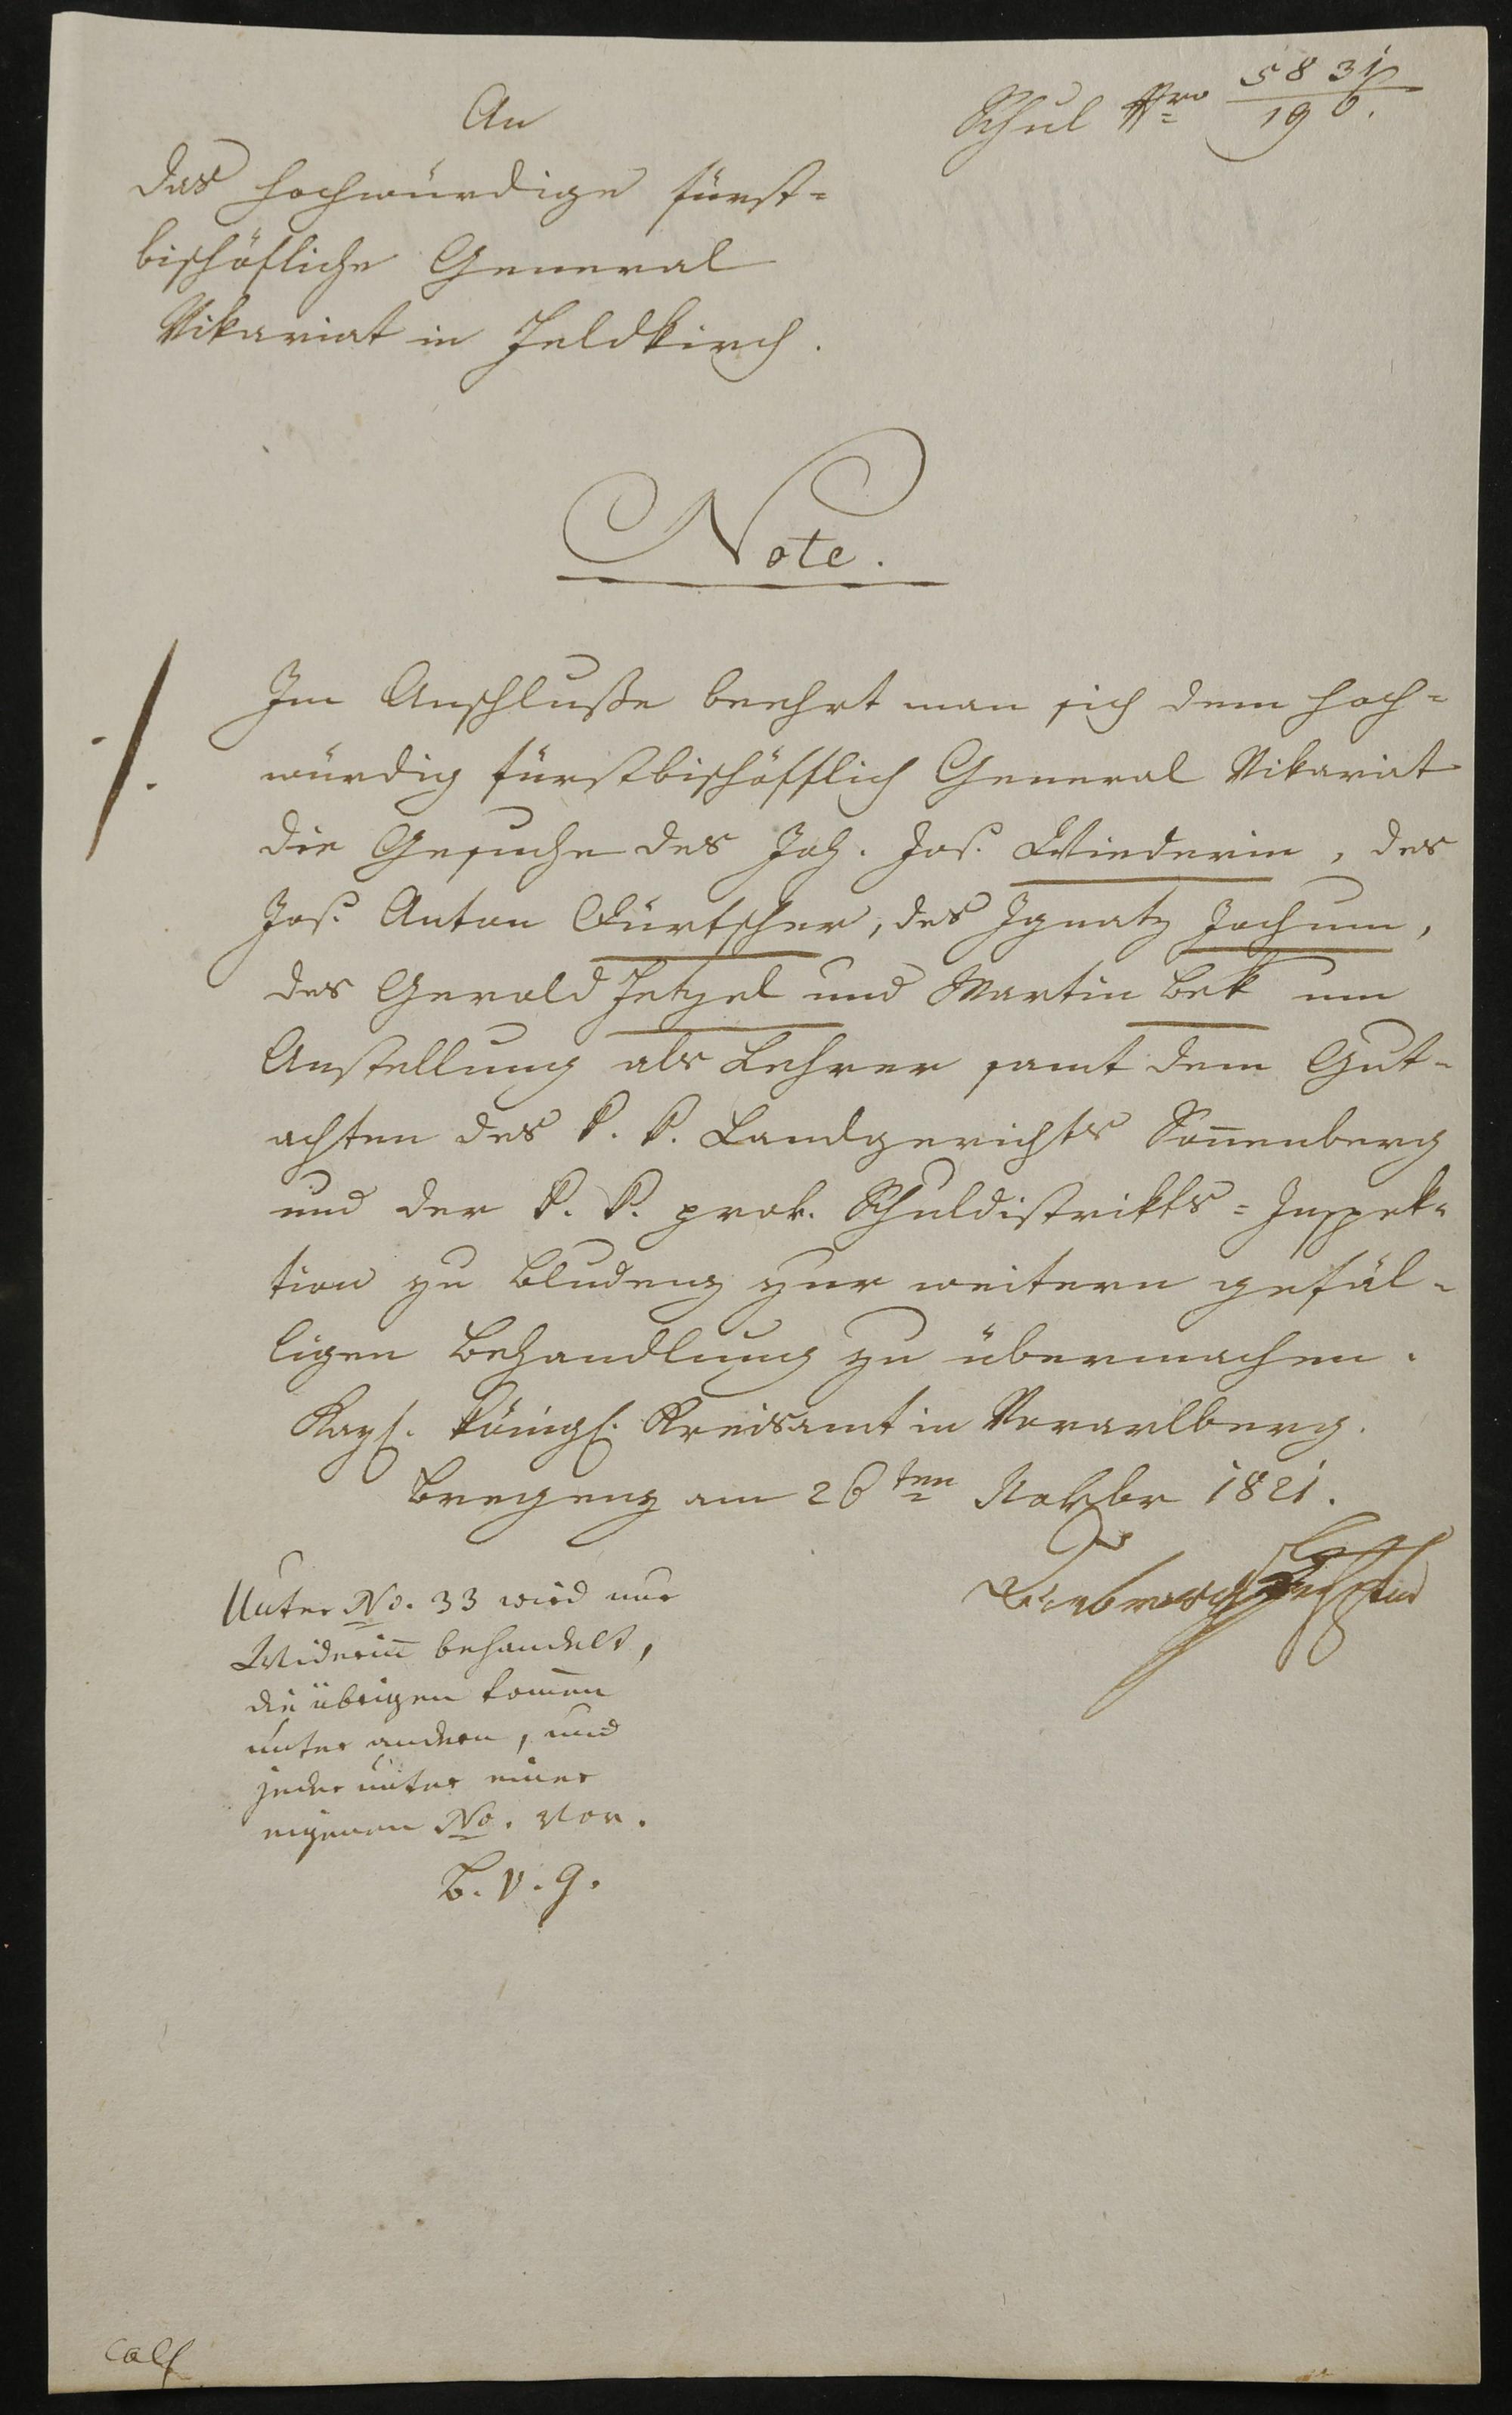 Schul Nro 5831/196.
An
das hochwürdige fürst-
bischöfliche General
Vikariat in Feldkirch.
Note.
Im Anschluße beehrt man sich dem hoch-
würdig fürstbischöfflich General Vikariat
die Gesuche des Joh. Jos. Wiederin, des
Jos. Anton Dürtscher, des Ignatz Jochum,
des Gerold Jetzel und Martin Bek um
Anstellung als Lehrer samt dem Gut-
achten des k. k. Landgerichts Soñenberg
und der k. k. prov. Schuldistrikts-Inspek-
tion zu Bludenz zur weitern gefäl-
ligen Behandlung zu übermachen.
Kays. königl. Kreisamt in Vorarlberg.
Bregenz am 26ten Novbr 1821.
Unter No. 33 wird nur
Wideriñ behandelt,
die übrigen kom̄en
unter andern, und
jeder unter einer
eigenen No. vor.
B. v. G.